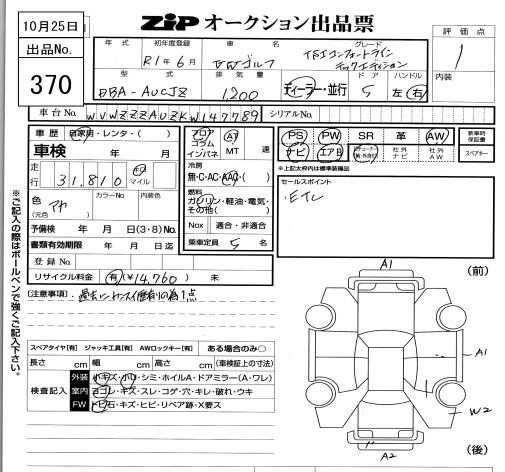 10月25日
ZIP オークション出品票
出品No.
370
年式
初年度登録
車名
グレード
評価点
R1年6月
VWゴルフ
TSIコンフォートライン
テックエディション
1
型式
排気量
ドア
ハンドル
内装
DBA-AUCJZ
1,200
ディーラー・並行
5
左・右
車台No.
WVWZZZAUZKW147789
シリアルNo.
車歴
自家用・レンタ・( )
フロア
コラム
インパネ
AT
MT
速
PS
PW
SR
革
AW
新車時保証書
車検
年 月
ナビ
エアB
社外ナビ
社外AW
スペアキー
冷房
無・C・AC・AAC・( )
※上記太枠内は標準装備品
走行
31,810
キロ
マイル
燃料
ガソリン・軽油・電気・
その他( )
セールスポイント
・ETC
色
(元色 )
カラーNo
内装色
Nox
適合・非適合
予備検 年 月 日(3・8)No.
書類有効期限 年 月 日迄
乗車定員
5名
登録No
リサイクル料金
有(¥14,760) 未
(注意事項)
スペアタイヤ[有] ジャッキ工具[有] AWロックキー[有] ある場合のみ○
長さ cm 幅 cm 高さ cm (車検証上の寸法)
検査記入
外装
小キズ・小ハリ・シミ・ホイルA・ドアミラー(A・ワレ)
室内
ヨゴレ・キズ・スレ・コゲ・穴・キレ・破れ・ウキ
FW
トビ石・キズ・ヒビ・リペア跡・X要ス
※ご記入の際はボールペンで強くご記入下さい。
A1
(前)
A1
W2
A2
(後)